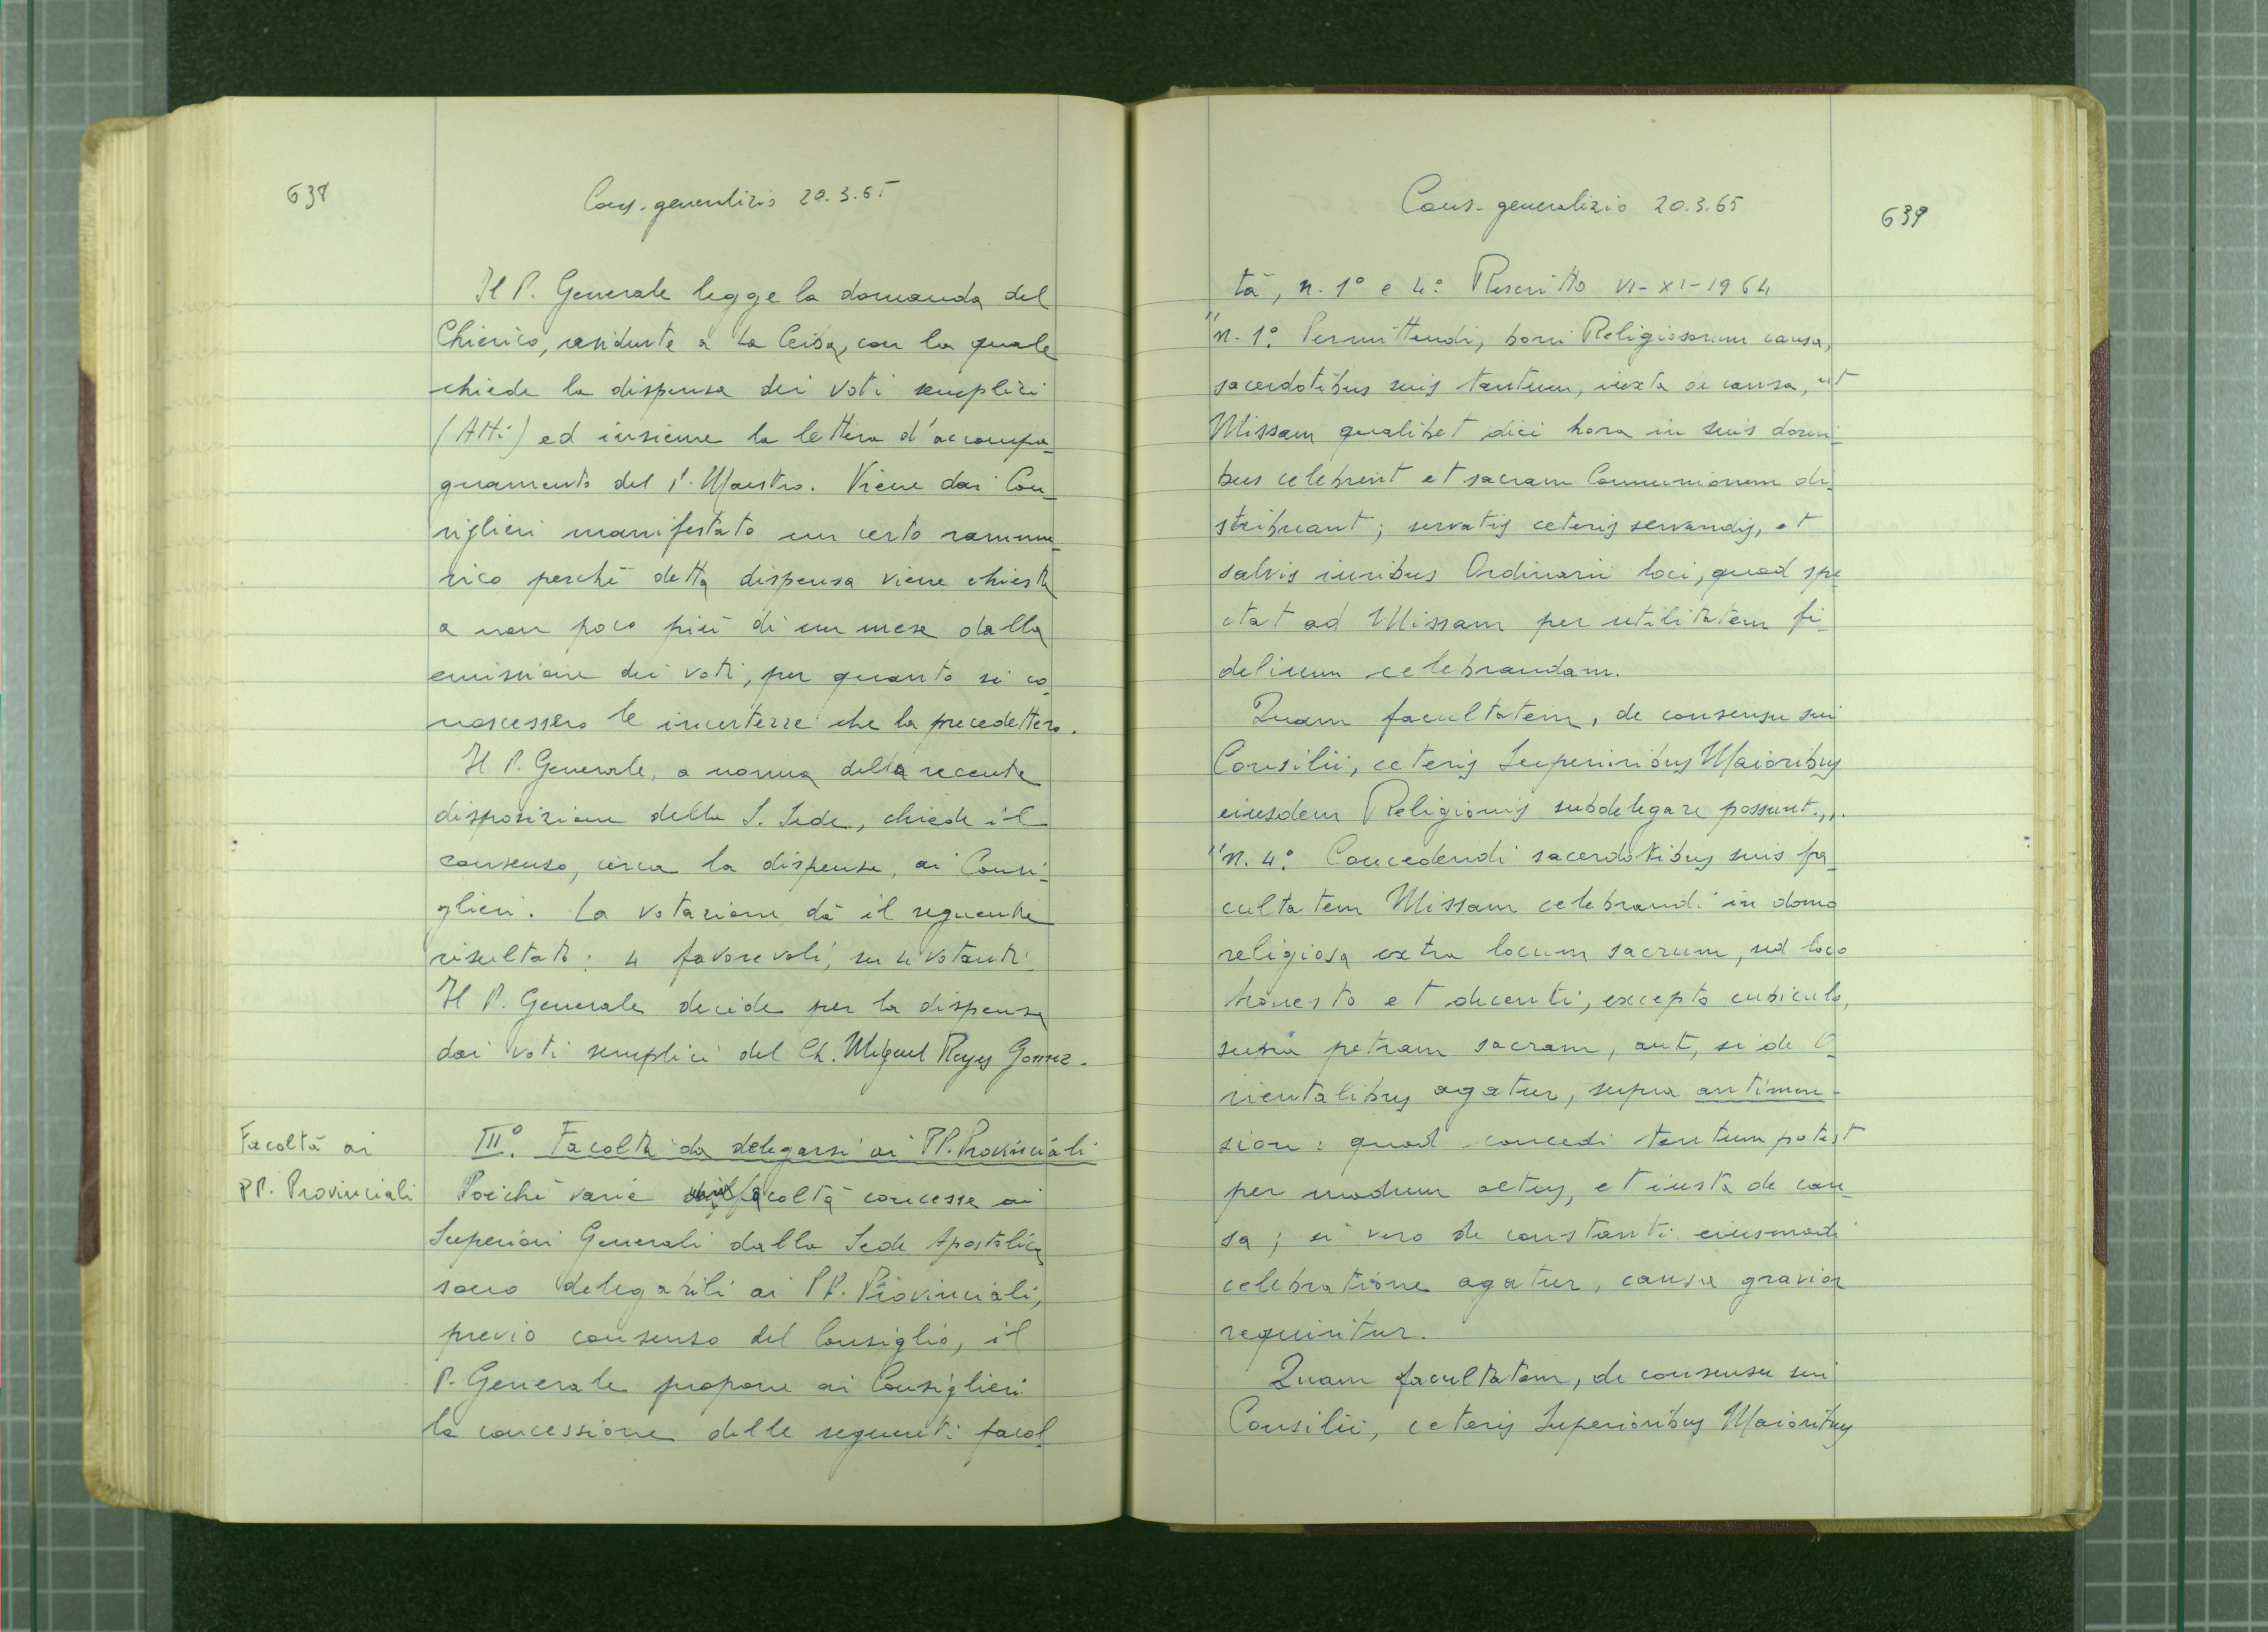 638
Cons. generalizio 20.3.65
Il P. Generale legge la domanda del
Chierico, residente a La Ceiba, con la quale
chiede la dispensa dei voti semplici
(Atti) ed insieme la lettera d'accompa-
gnamento del P. Maestro. Viene dai Con-
siglieri manifestato un certo ramma-
rico perché detta dispensa viene chiesta
a non poco più di un mese dalla
emissione dei voti, per quanto si co-
noscessero le incertezze che la precedettero.
Il P. Generale, a norma della recente
disposizione della S. Sede, chiede il
consenso, circa la dispensa, ai Consi-
glieri. La votazione dà il seguente
risultato: 4 favorevoli, su 4 votanti.
Il P. Generale decide per la dispensa
dai voti semplici del Ch. Miguel Reyes Gomez.
Facoltà ai
PP. Provinciali
III° Facoltà da delegarsi ai PP. Provinciali
Poiché varie facoltà concesse ai
Superiori Generali dalla Sede Apostolica
sono delegabili ai PP. Provinciali,
previo consenso del Consiglio, il
P. Generale propone ai Consiglieri
la concessione delle seguenti facol-
Cons. generalizio 20.3.65
639
tà, n. 1° e 4° Rescritto VI-XI-1964
"n. 1° Permittendi, boni Religiosorum causa,
sacerdotibus suis tantum, iusta de causa, ut
Missam qualibet diei hora in suis domi-
bus celebrent et sacram Communionem di-
stribuant; servatis ceteris servandis, et
salvis iuribus Ordinarii loci, quod spe-
ctat ad Missam per utilitatem fi-
delium celebrandam.
Quam facultatem, de consensu sui
Consilii, ceteris Superioribus Maioribus
eiusdem Religionis subdelegare possunt.,,.
"n. 4° Concedendi sacerdotibus suis fa-
cultatem Missam celebrandi in domo
religiosa extra locum sacrum, sed loco
honesto et decenti, excepto cubiculo,
supra petram sacram, aut, si de O-
rientalibus agatur, supra antimen-
sion: quod concedi tantum potest
per modum actus, et iusta de cau-
sa; si vero de constanti eiusmodi
celebratione agatur, causa gravior
requiritur.
Quam facultatem, de consensu sui
Consilii, ceteris Superioribus Maioribus